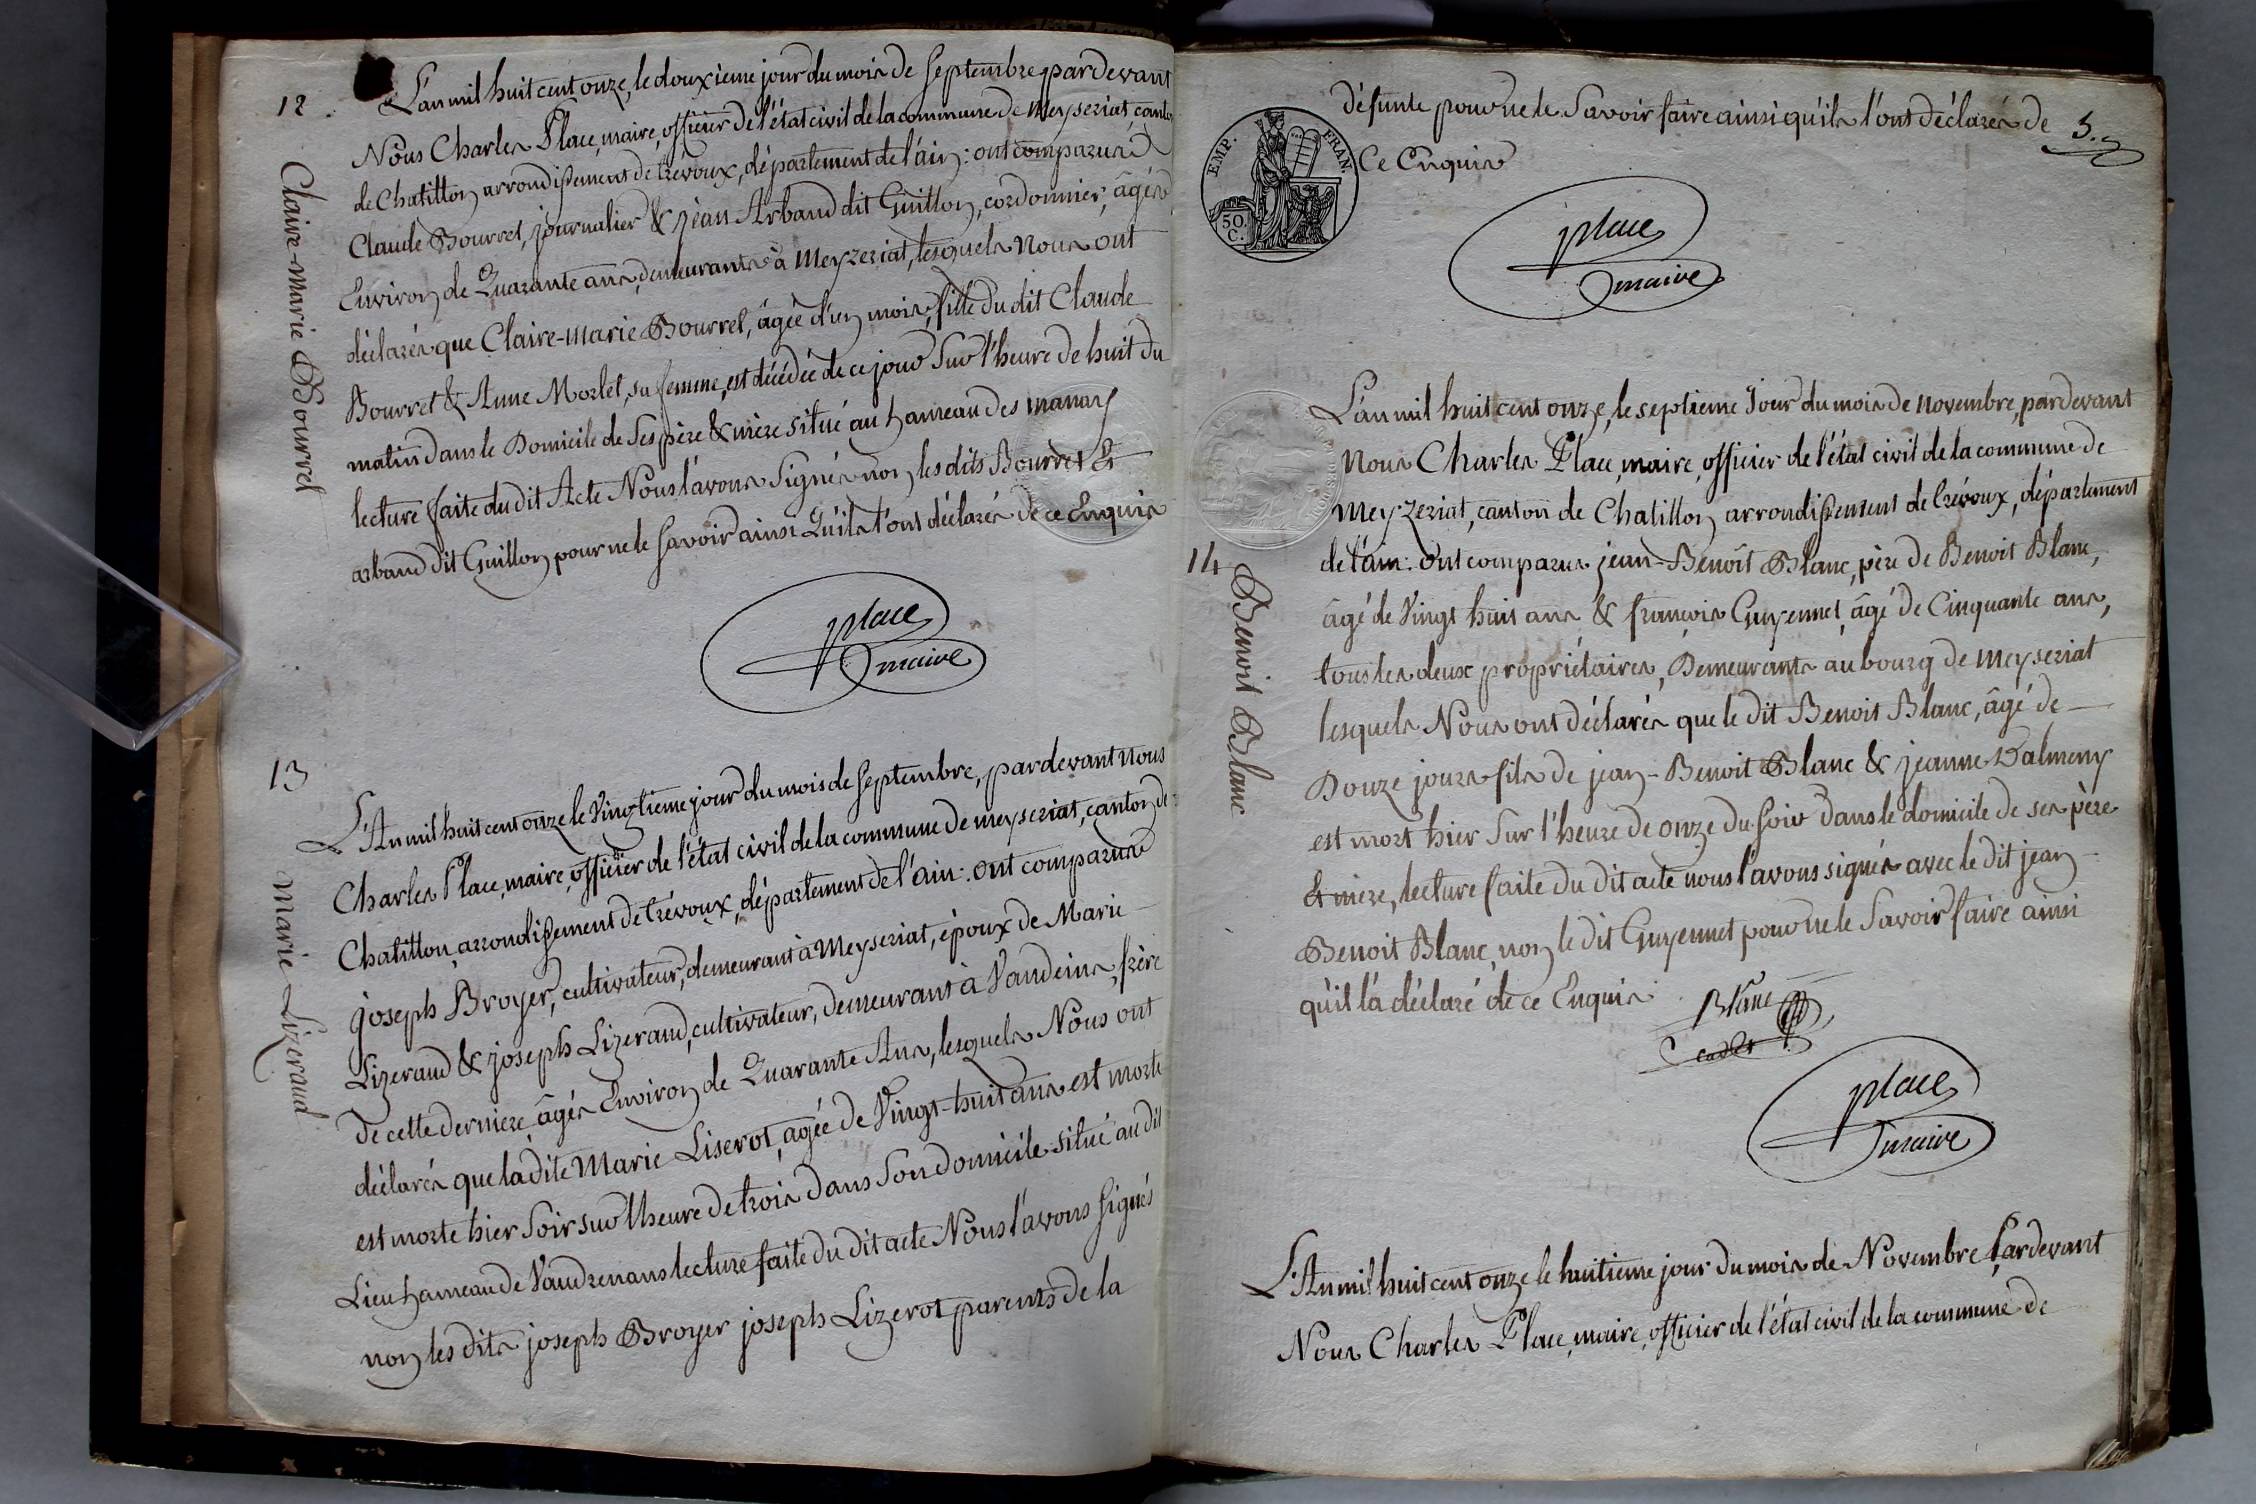 12
L'an mil huit cent onze, le douxième jour du mois de Septembre pardevant
Nous Charles Place, maire, officier de l'état civil de la commune de Meyseriat, canton
de Chatillon arrondissement de Trévoux, département de l'ain : ont comparus
Claude Bourret, journalier & jean Arband dit Guillon, cordonnier, âgés
Environ de Quarante ans, demeurants à Meyzeriat, lesquels Nous ont
déclarés que Claire-Marie Bourret, âgée d'un mois, fille du dit Claude
Bourret & Anne Morlet, sa femme, est décédée de ce jour Sur l'heure de huit du
matin dans le Domicile de Ses père & mère situé au hameau des manary
lecture faite du dit Acte Nous l'avons Signés non les dits Bourret &
arband dit Guillon pour ne le Savoir ainsi Qu'ils l'ont déclarés de ce Enquis
Claire-Marie Bourret
place
maire
13
L'An mil huit cent onze le Vingtieme jour du mois de Septembre, pardevant nous
Charles Place, maire, officier de l'état civil de la commune de meyseriat, canton de
Chatillon, arrondissement de Trévoux, département de l'ain : ont comparus
joseph Broyer, cultivateur, demeurant à Meyseriat, époux de Marie
Lizeraud & joseph Lizeraud, cultivateur, demeurant à Vandeins, frère
de cette derniere, âgés Environ de Quarante Ans, lesquels Nous ont
déclarés que la dite Marie Liserot, agée de Vingt-huit ans est morte
est morte hier Soir sur l'heure de trois dans Son domicile situé au dit
Lieu hameau de Vaudrenans lecture faite du dit acte Nous l'avons Signés
non les dits joseph Broyer joseph Lizerot parents de la
Marie Lizeraud
défunte pour ne le Savoir faire ainsi qu'ils l'ont déclarés de
Ce Enquis
5.
EMP. FRAN.
50. C.
place
maire
14
L'an mil huit cent onze, le septieme Jour du mois de Novembre, pardevant
Nous Charles Place, maire, officier de l'état civil de la commune de
Meyzeriat, canton de Chatillon arrondissement de Trévoux, département
de l'ain : Ont comparus jean-Benoît Blanc, père de Benoit Blanc,
âgé de Vingt huit ans & françois Guyennet, âgé de Cinquante ans,
tous les deux propriétaires, Demeurants au bourg de Meyseriat
lesquels Nous ont déclarés que le dit Benoit Blanc, âgé de
Douze jours fils de jean-Benoit Blanc & jeanne Dalmeny
est mort hier Sur l'heure de onze du Soir Dans le domicile de ses père
et mere, lecture faite du dit acte nous l'avons signés avec le dit jean
Benoit Blanc, non le dit Guyennet pour ne le Savoir faire ainsi
qu'il l'a déclaré de ce Enquis
Benoit Blanc
Blanc
Cadet
place
maire
L'An mil huit cent onze le huitieme jour du mois de Novembre Pardevant
Nous Charles Place, maire, officier de l'état civil de la commune de